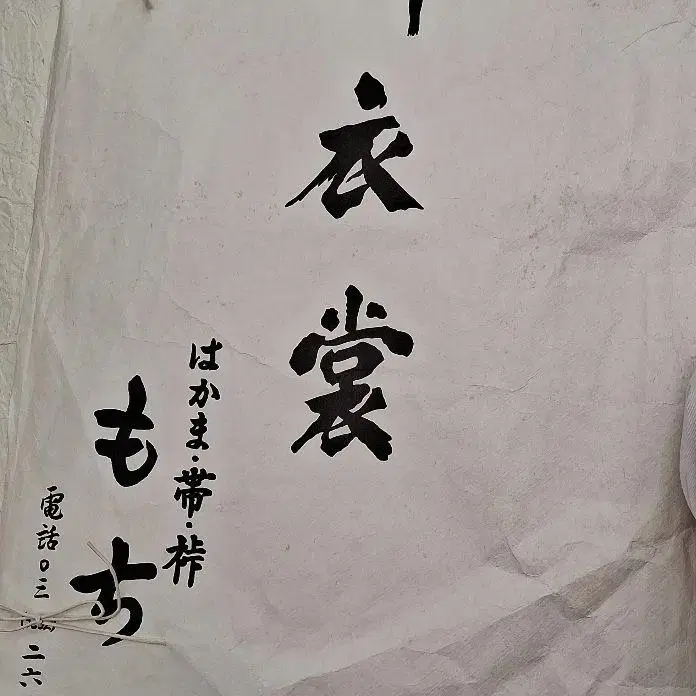 衣裳
はかま・帯・裃
もち
電話〇三
二六